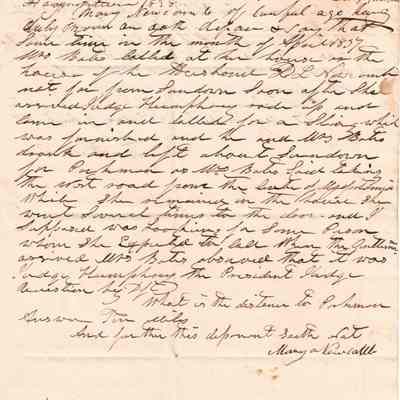 Mary Newcomb of lawful age having
duly sworn on oath depose & say that
some time in the month of April 1837
Mrs Bates called at her house or the
house of the Husband D L Newcomb
not far from Sundown Soon after She
arrived Judge Humphrey rode up and
came in and called for a Sling which
was furnished and he and Mrs Bates
drank and left about Sundown
for Parkman as Mrs Bates Said taking
the west road from the
While She remained in the house She
went Several times to the door and I
Supposed was Looking for Some Person
whom She Expected to call When the Gentleman
arrived Mrs Bates observed that it was
Judge Humphrey the President Judge
Question by
What is the distance to Parkman
Answer Ten Miles
And further this deponent Saith not
Mary Newcomb